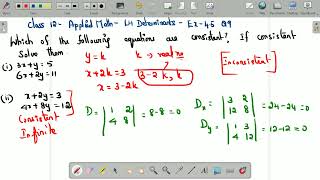 Class 12 - Applied Math - L4 Determinants - Ex-4.5 Q9
Which of the following equations are consistent? If consistent
Solve them
(i) 3x+y=5
6x+2y=11
y=k k → real no
x+2k=3 (3-2k, k)
x=3-2k
Inconsistent
(ii) x+2y=3
4x+8y=12
Consistent
Infinite
D = |1 2; 4 8| = 8-8=0
Dx = |3 2; 12 8| = 24-24=0
Dy = |1 3; 4 12| = 12-12=0